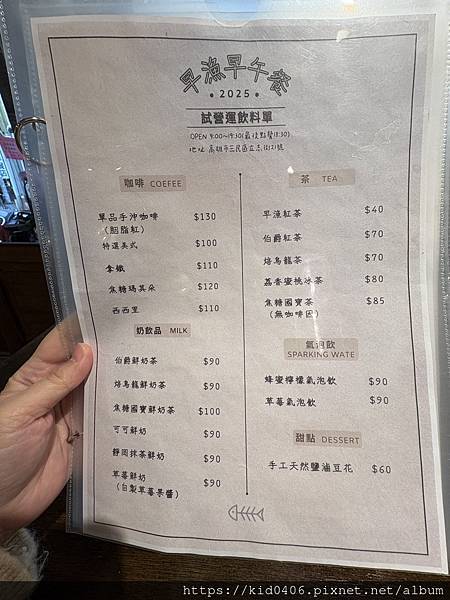 早漁早午餐
• 2025 •
試營運飲料單
地址 高雄市三民區立志街21號
咖啡 COEFEE
單品手沖咖啡 $130
(胭脂紅)
特選美式 $100
拿鐵 $110
焦糖瑪其朵 $120
西西里 $110
奶飲品 MILK
伯爵鮮奶茶 $90
焙烏龍鮮奶茶 $90
焦糖國寶鮮奶茶 $100
可可鮮奶 $90
靜岡抹茶鮮奶 $90
草莓鮮奶 $90
(自製草莓果醬)
茶 TEA
早漁紅茶 $40
伯爵紅茶 $70
焙烏龍茶 $70
荔香蜜桃冰茶 $80
焦糖國寶茶 $85
(無咖啡因)
氣泡飲
SPARKING WATE
蜂蜜檸檬氣泡飲 $90
草莓氣泡飲 $90
甜點 DESSERT
手工天然鹽滷豆花 $60
https://kid0406.pixnet.net/album